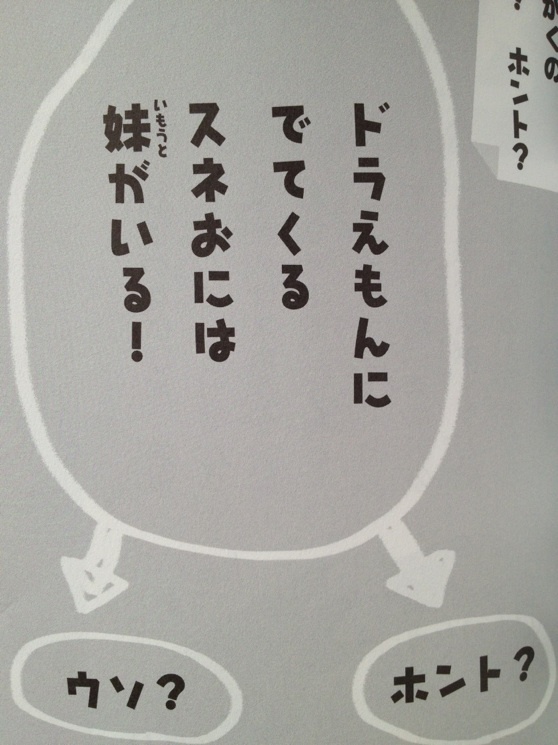 ホント？
ドラえもんに
でてくる
スネおには
妹がいる！
いもうと
ホント？
ウソ？